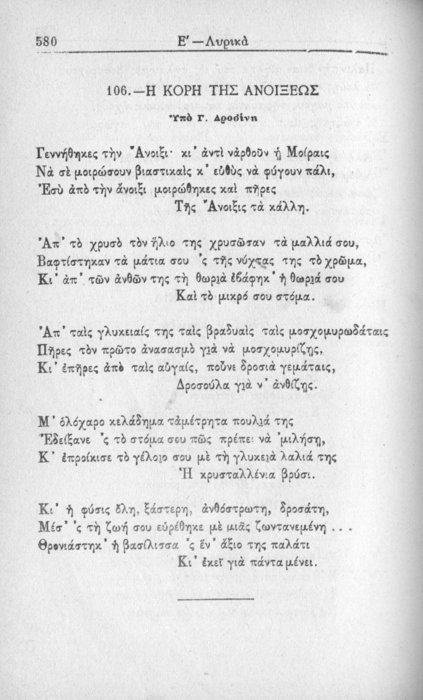 580
Ε' —Λυρικὰ
106.—Η ΚΟΡΗ ΤΗΣ ΑΝΟΙΞΕΩΣ
Ὑπὸ Γ. Δροσίνη
Γεννήθηκες τὴν Ἄνοιξι· κι' ἀντὶ νἀρθοῦν ᾑ Μοίραις
Νὰ σὲ μοιρώσουν βιαστικαὶς κ' εὐθὺς νὰ φύγουν πάλι,
Ἐσὺ ἀπὸ τὴν ἄνοιξι μοιρώθηκες καὶ πῆρες
Τῆς Ἄνοιξις τὰ κάλλη.
Ἀπ' τὸ χρυσὸ τὸν ἥλιο της χρυσῶσαν τὰ μαλλιά σου,
Βαφτίστηκαν τὰ μάτια σου 'ς τῆς νύχτας της τὸ χρῶμα,
Κι' ἀπ' τῶν ἀνθῶν της τὴ θωριὰ ἐβάφηκ' ἡ θωριά σου
Καὶ τὸ μικρό σου στόμα.
Ἀπ' ταὶς γλυκειαίς της ταὶς βραδυαὶς ταὶς μοσχομυρωδάταις
Πῆρες τὸν πρῶτο ἀνασασμὸ γιὰ νὰ μοσχομυρίζῃς,
Κι' ἐπῆρες ἀπὸ ταὶς αὐγαίς, ποὖνε δροσιὰ γεμάταις,
Δροσούλα γιὰ ν' ἀνθίζῃς.
Μ' ὁλόχαρο κελάδημα τἀμέτρητα πουλιά της
Ἐδείξανε 'ς τὸ στόμα σου πῶς πρέπει νὰ 'μιλήσῃ,
Κ' ἐπροίκισε τὸ γέλοιο σου μὲ τὴ γλυκειὰ λαλιά της
Ἡ κρυσταλλένια βρύσι.
Κι' ἡ φύσις ὅλη, ξάστερη, ἀνθόστρωτη, δροσάτη,
Μέσ' 'ς τὴ ζωή σου εὑρέθηκε μὲ μιᾶς ζωντανεμένη . . .
Θρονιάστηκ' ἡ βασίλισσα 'ς ἕν' ἄξιο της παλάτι
Κι' ἐκεῖ γιὰ πάντα μένει.